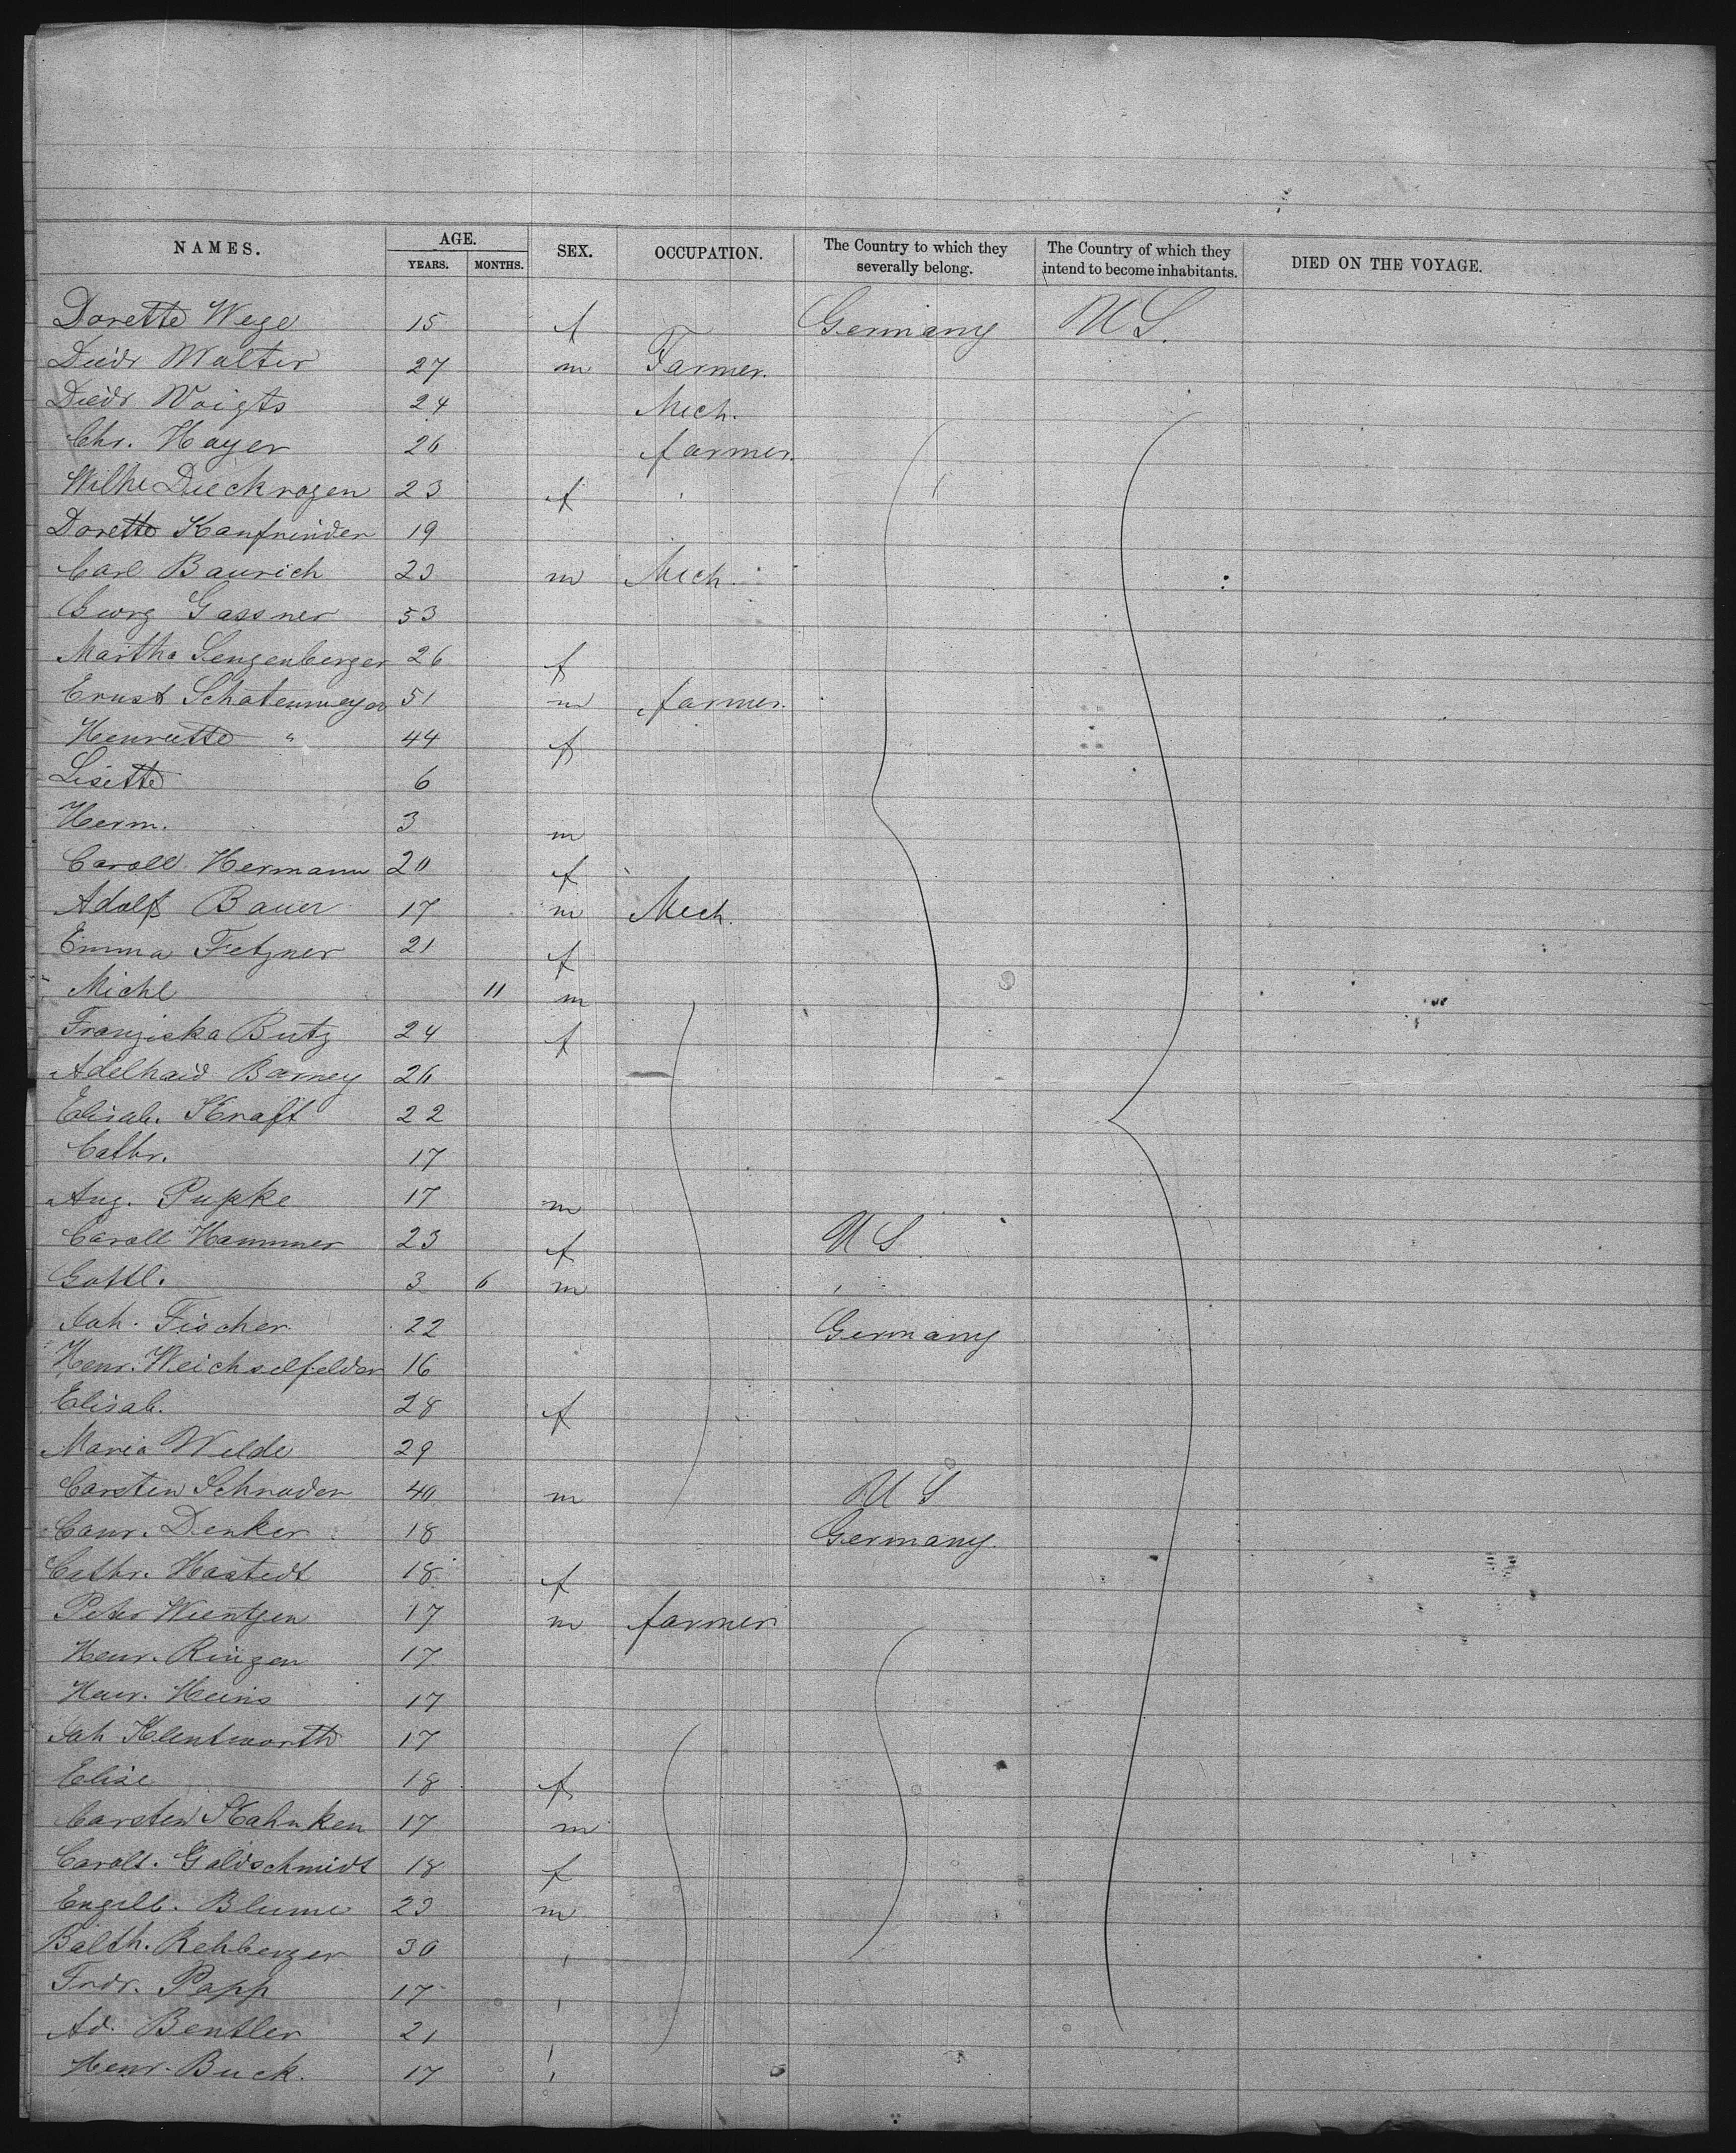 NAMES. AGE. SEX. OCCUPATION. The Country to which they severally belong. The Country of which they intend to become inhabitants. DIED ON THE VOYAGE.
YEARS. MONTHS.
Dorette Wege 15 f Germany U S.
Diedr Walter 27 m Farmer.
Diedr Voigts 24 Mech.
Chr. Hayer 26 farmer.
Wilhe Dieckrogen 23 f
Dorette 19
Carl Baurich 23 m Mech.
Georg Gassner 53
Martha Lengenberger 26 f
Ernst Schatenmeyer 51 m farmer.
Henriette " 44 f
Lisette 6
Herm. 3 m
Caroll Hermann 20 f
Adolf Bauer 17 m Mech.
Emma Fetzner 21 f
Michl 11 m
Franziska Butz 24 f
Adelhaid Barney 26
Elisab. Kraft 22
Cathr. 17
Aug. Pupke 17 m
Caroll Hammer 23 f U S
Gottl. 3 6 m
Joh. Fischer 22 Germany
Henr. Weichselfelder 16
Elisab. 28 f
Maria Wilde 29
Carsten Schrader 40 m U S
Conr. Denker 18 Germany.
Cathr. Hastedt 18 f
Peter Wientgen 17 m farmer
Henr. Ringen 17
Henr. Heins 17
Joh Klentworth 17
Elise 18 f
Carsten Kahnken 17 m
Carolt. Goldschmidt 18 f
Engelb. Blume 23 m
Balth. Rehberger 30
Frdr. Papp 17
Ad. Bentler 21
Henr. Buck. 17